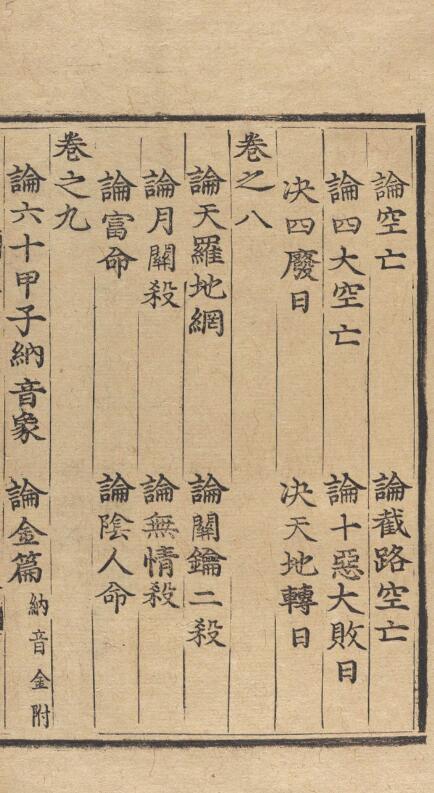 論空亡　論截路空亡
論四大空亡　論十惡大敗日
决四廢日　决天地轉日
卷之八
論天羅地網　論關鑰二殺
論月關殺　論無情殺
論富命　論陰人命
卷之九
論六十甲子納音象　論金篇納音金附